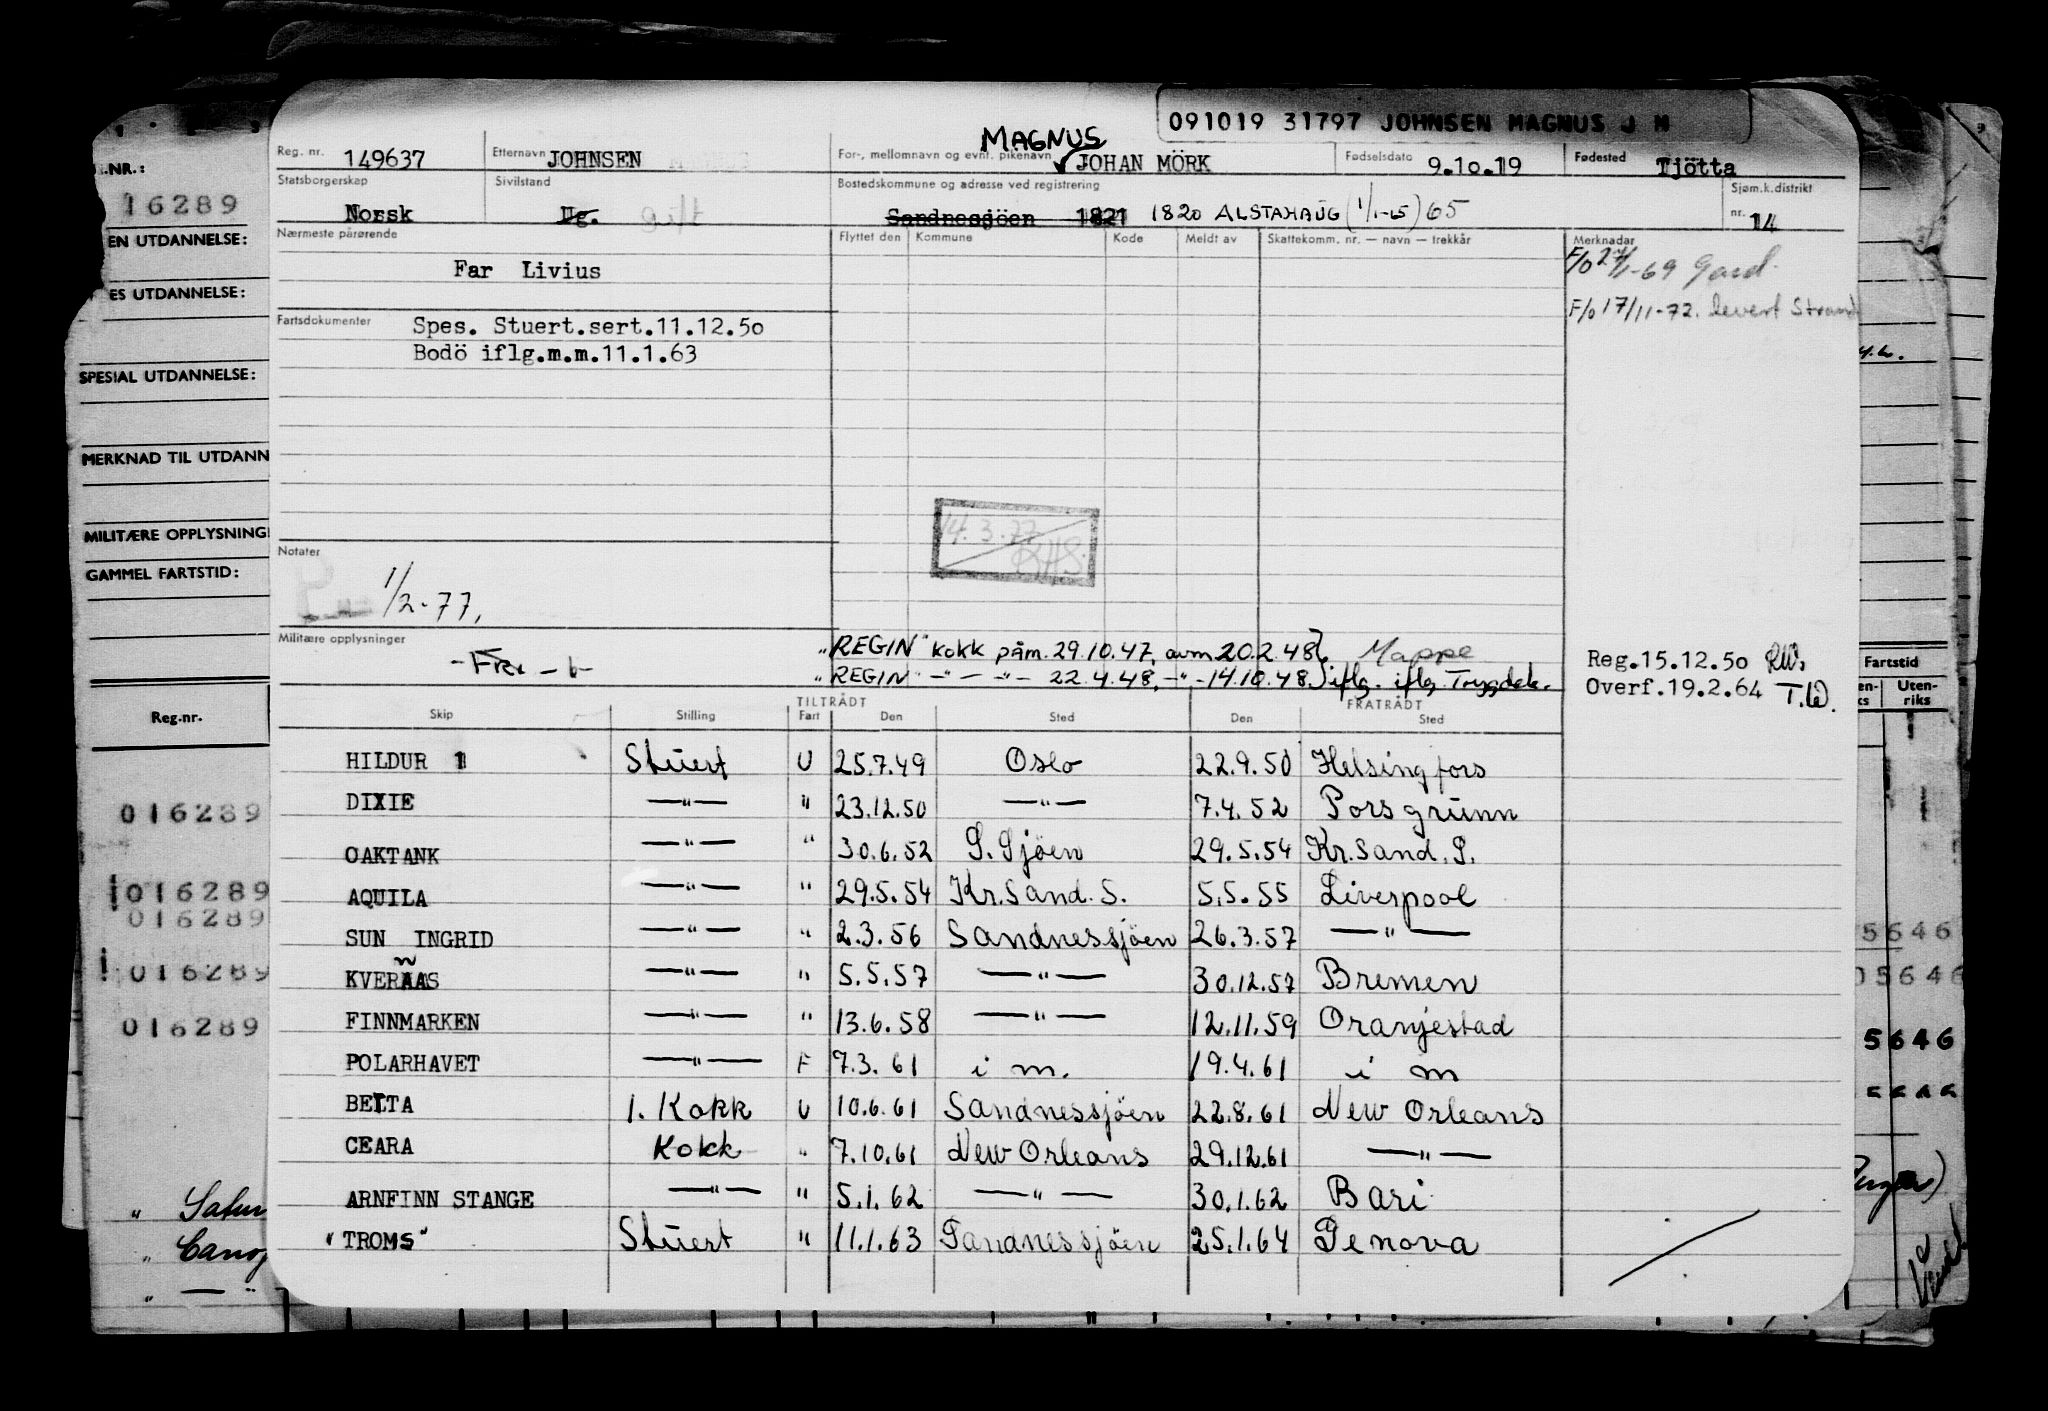 091019 31797 JOHNSEN MAGNUS J M
MAGNUS
Reg. nr. 149637 Etternavn JOHNSEN For-, mellomnavn og evnt. pikenavn JOHAN MÖRK Fødselsdato 9.10.19 Fødested Tjötta
Statsborgerskap Norsk Sivilstand Ug. gift Bostedskommune og adresse ved registrering Sandnessjöen 1821 1820 ALSTAHAUG (1/1-65) 65 Sjøm.k.distrikt nr. 14
Nærmeste pårørende Flyttet den Kommune Kode Meldt av Skattekomm. nr. — navn — trekkår Merknader
Far Livius
F/o 2 -69 Gard.
F/o 17/11-72. levert Strand
Fartsdokumenter Spes. Stuert.sert.11.12.50
Bodö iflg.m.m.11.1.63
14.3.77
RHS.
Notater
1/2-77,
Militære opplysninger
"REGIN" kokk påm. 29.10.47, avm 20.2.48 Mappe
"REGIN" —"— —"— 22.4.48, —"— 14.10.48 iflg. iflg. Trygdek.
Reg.15.12.50 RW.
Overf.19.2.64 T.W.
TILTRÅDT FRATRÅDT
Skip Stilling Fart Den Sted Den Sted
HILDUR 1 Stuert U 25.7.49 Oslo 22.9.50 Helsingfors
DIXIE —"— " 23.12.50 —"— 7.4.52 Porsgrunn
OAKTANK —"— " 30.6.52 S.Sjöen 29.5.54 Kr.Sand.S.
AQUILA —"— " 29.5.54 Kr.Sand.S. 5.5.55 Liverpool
SUN INGRID —"— " 2.3.56 Sandnessjöen 26.3.57 —"—
KVERNAAS —"— " 5.5.57 —"— 30.12.57 Bremen
FINNMARKEN —"— " 13.6.58 —"— 12.11.59 Oranjestad
POLARHAVET —"— F 7.3.61 i m. 19.4.61 i m
BELTA 1. Kokk U 10.6.61 Sandnessjöen 22.8.61 New Orleans
CEARA Kokk " 7.10.61 New Orleans 29.12.61 —"—
ARNFINN STANGE —"— " 5.1.62 —"— 30.1.62 Bari
"TROMS" Stuert " 11.1.63 Sandnessjöen 25.1.64 Genova
.NR.:
16289
EN UTDANNELSE:
ES UTDANNELSE:
SPESIAL UTDANNELSE:
MERKNAD TIL UTDANN
MILITÆRE OPPLYSNING
GAMMEL FARTSTID:
Reg.nr.
016289
016289
016289
016289
016289
" Satur
" Canop
" — "
Fartstid
en-ks Uten-riks
5646
05646
5646